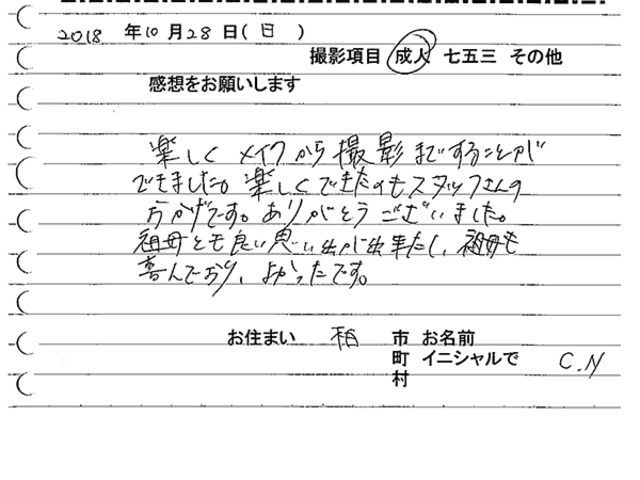 2018 年10月28日(日 )
撮影項目 成人 七五三 その他
感想をお願いします
楽しくメイクから撮影まですることが
できました。楽しくできたのもスタッフさんの
おかげです。ありがとうございました。
祖母とも良い思い出が出来たし、祖母も
喜んでおり、よかったです。
お住まい 柏 市 お名前
町 イニシャルで C.N
村